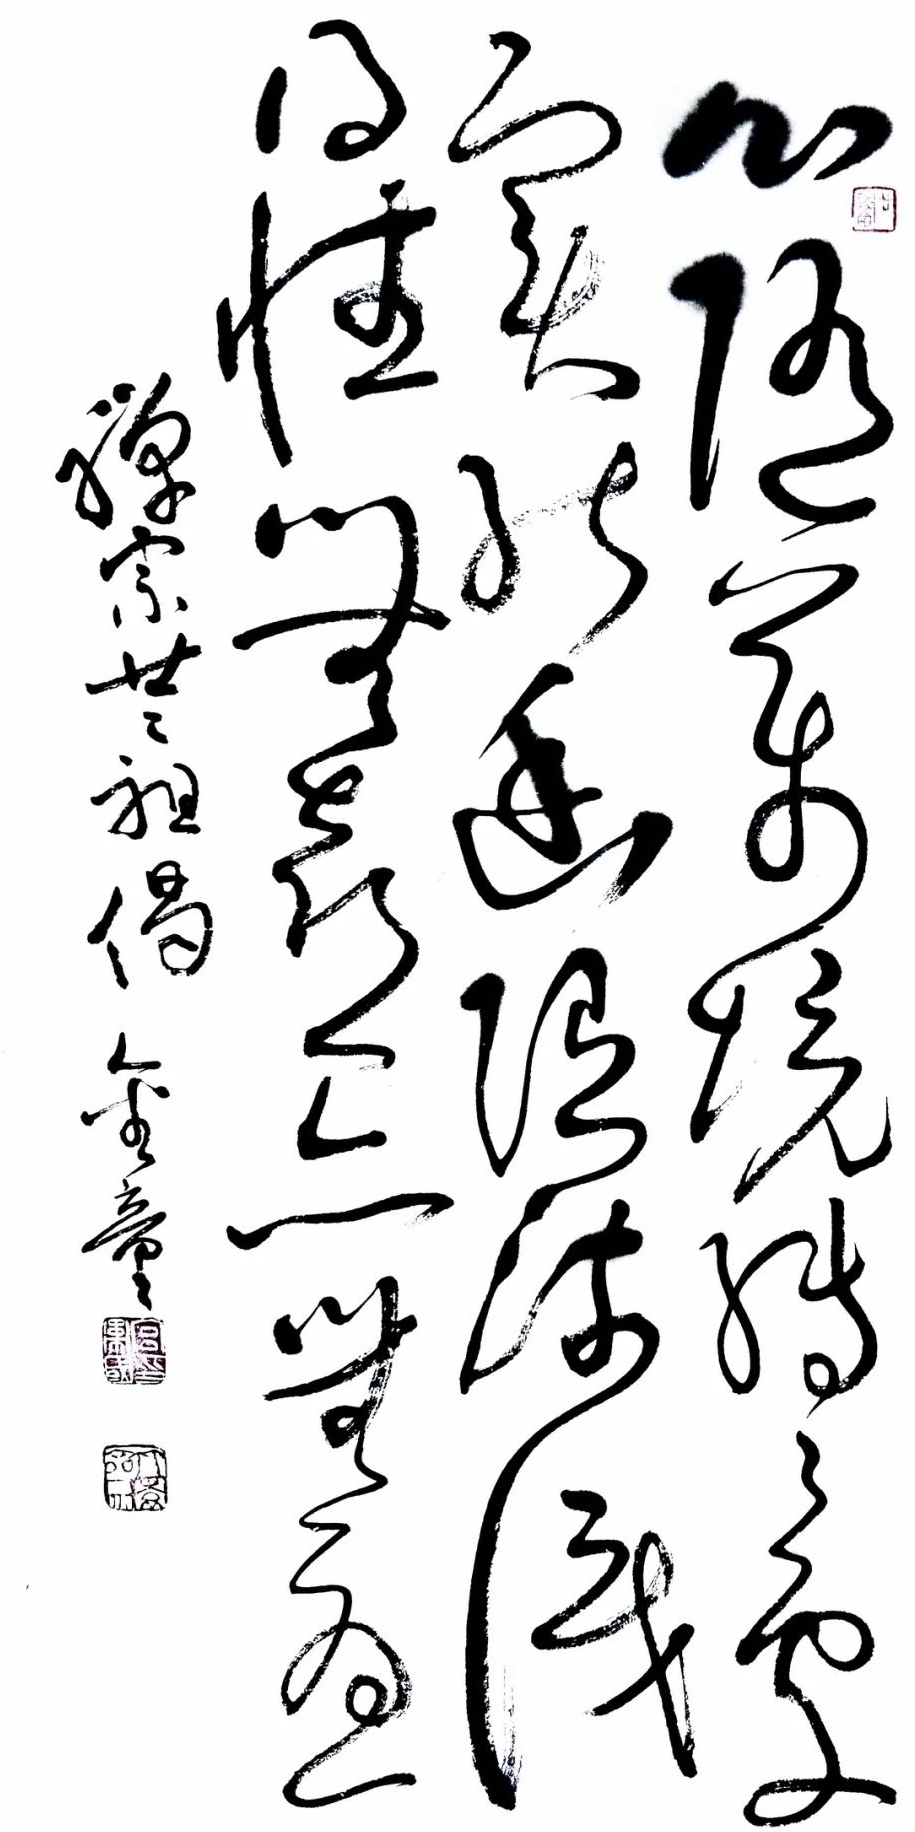 心隨萬境轉々處
實能幽隨流認
得性無喜亦無憂
禪宗廿二祖偈